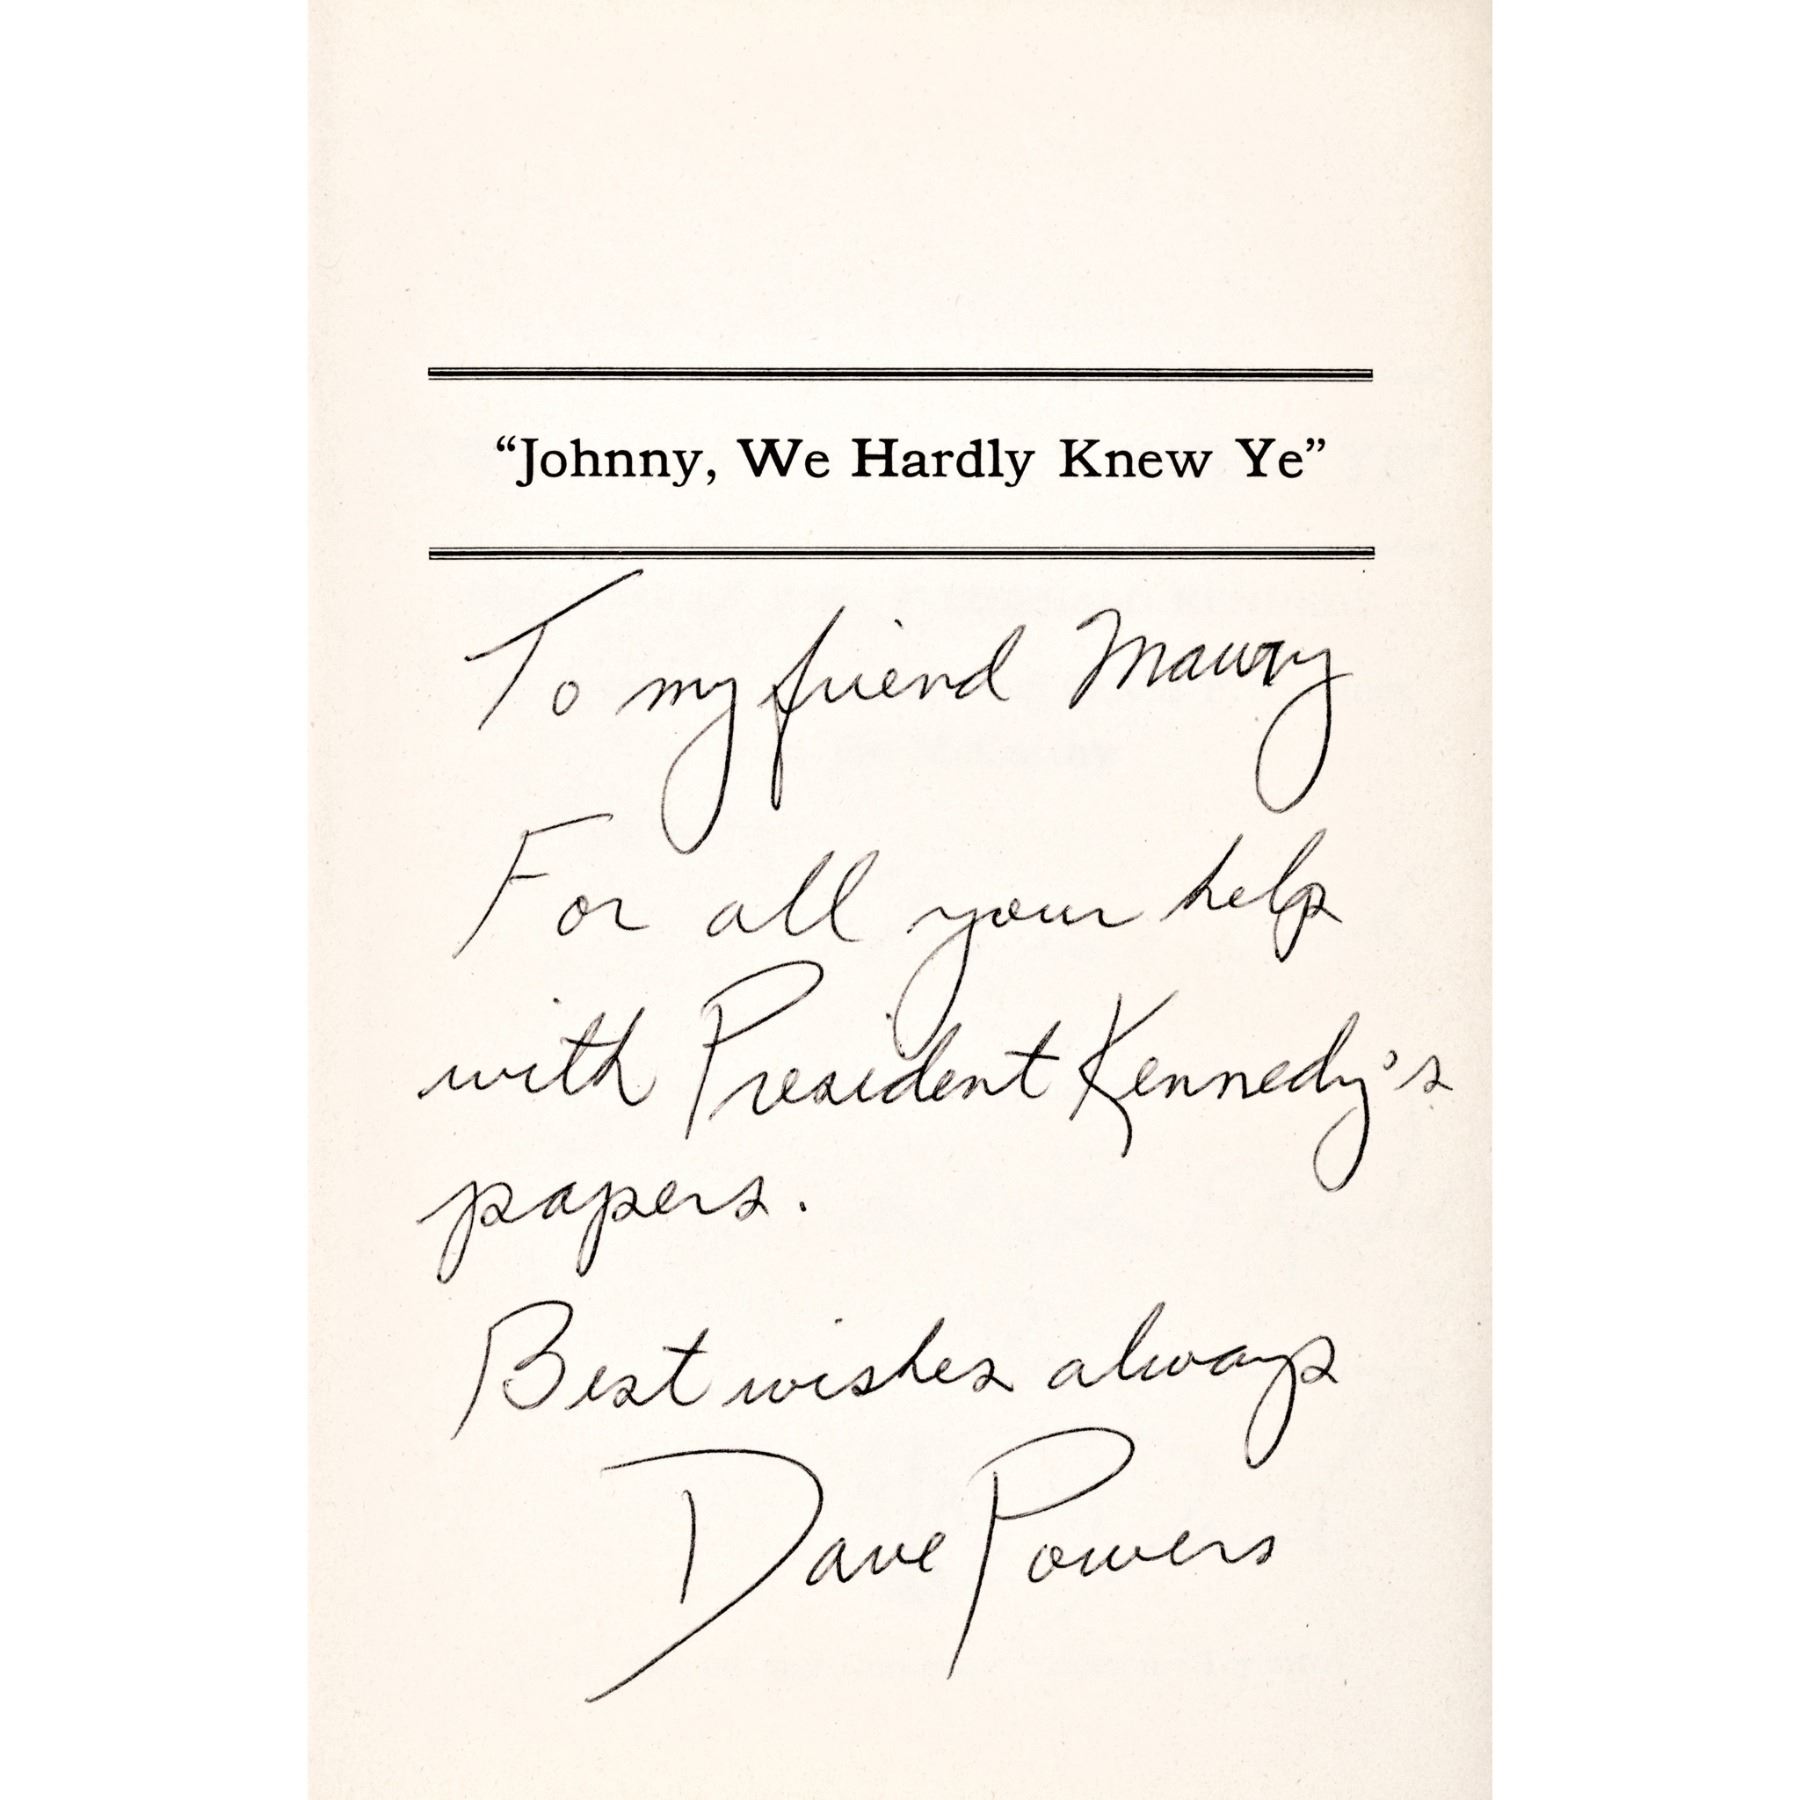 “Johnny, We Hardly Knew Ye”
To my friend Maury
For all your help
with President Kennedy's
papers.
Best wishes always
Dave Powers